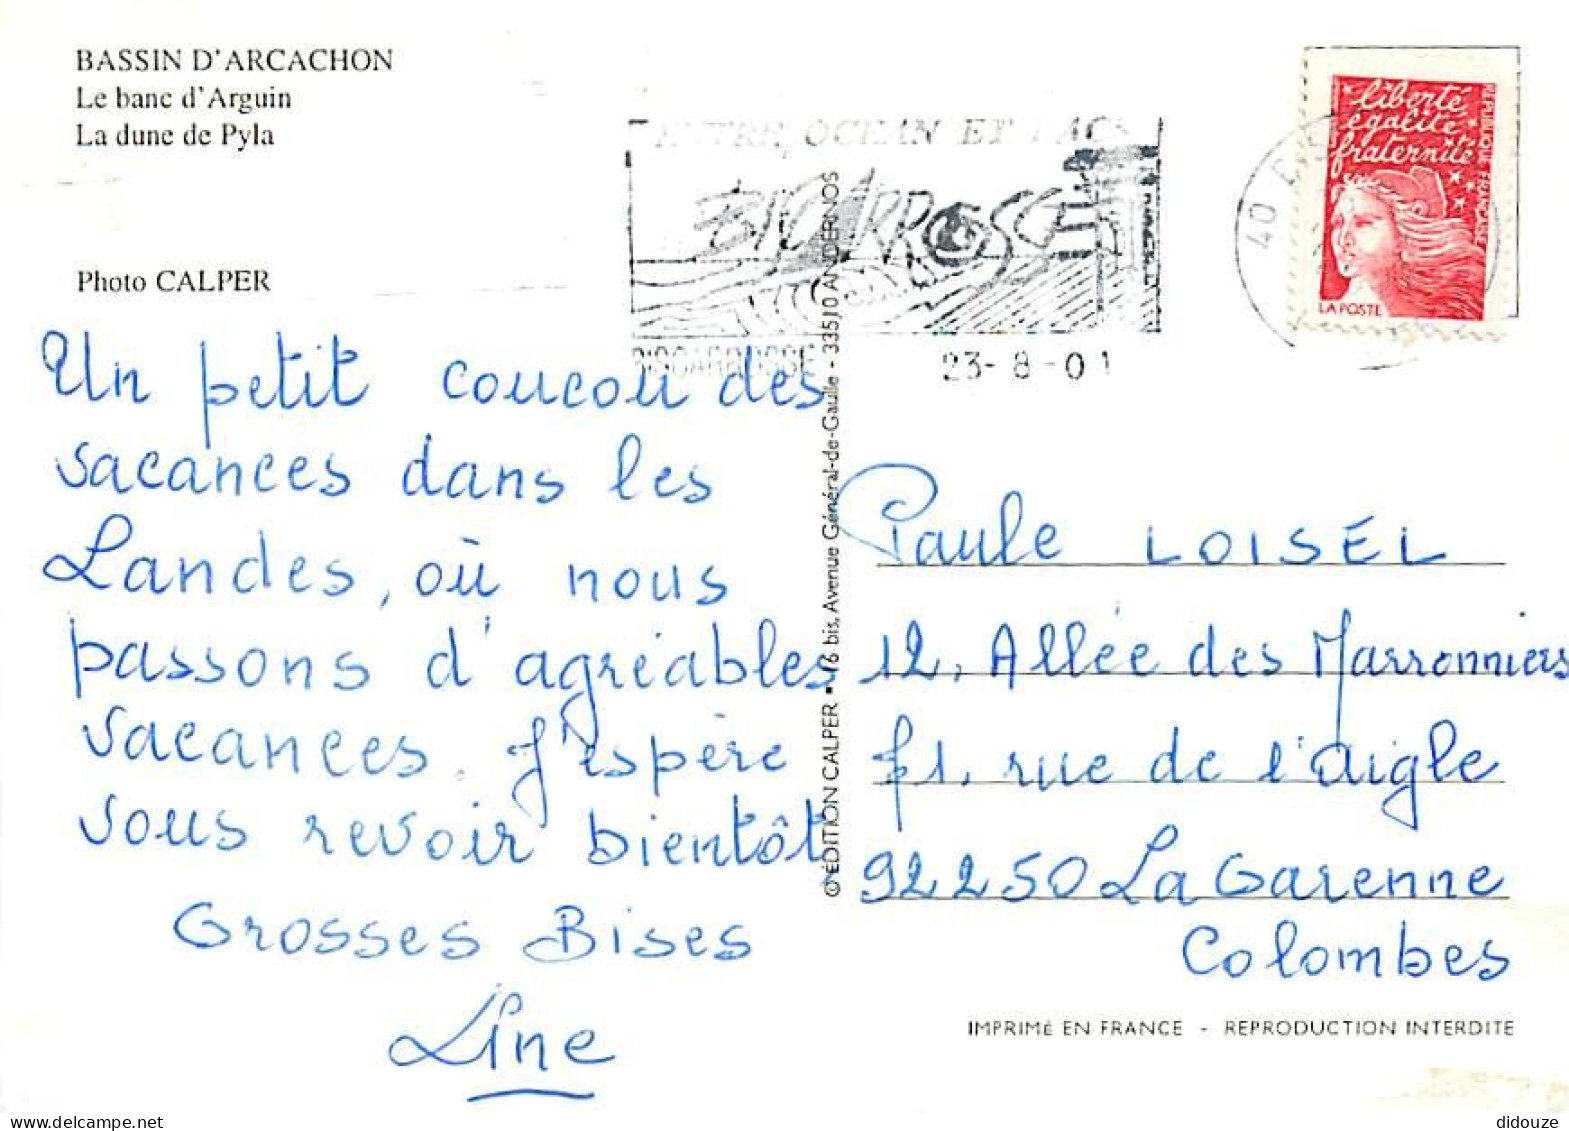 BASSIN D'ARCACHON
Le banc d'Arguin
La dune de Pyla
Photo CALPER
ENTRE OCEAN ET LACS
BISCARROSSE
BISCARROSSE
23-8-01
40
liberté
égalité
fraternité
RÉPUBLIQUE FRANÇAISE
LA POSTE
Un petit coucou des
vacances dans les
Landes, où nous
passons d'agréables
vacances. J'espère
vous revoir bientôt,
Grosses Bises
Line
© ÉDITION CALPER • 76 bis, Avenue Général-de-Gaulle - 33510 ANDERNOS
Paule LOISEL
12, Allée des Marronniers
f1, rue de l'aigle
92250 La Garenne
Colombes
IMPRIMÉ EN FRANCE - REPRODUCTION INTERDITE
didouze